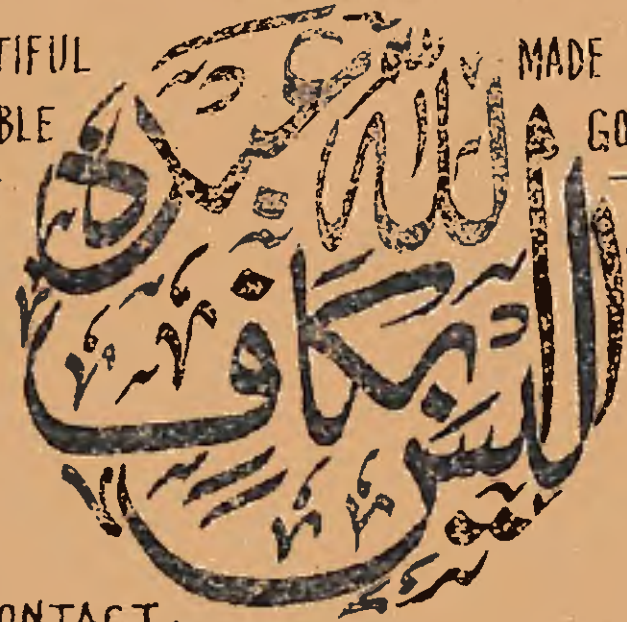 TIFUL MADE
BLE GO
أليس الله بكافٍ عبده
ONTACT.